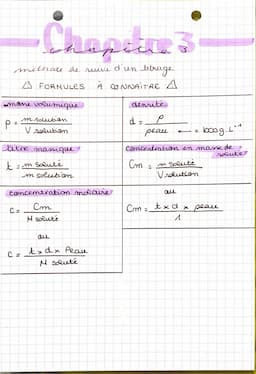 Chapitre 3
chapitre 3
méthode de suivi d'un titrage
⚠ FORMULES À CONNAÎTRE ⚠
masse volumique
ρ = m solution / V solution
densité
d = ρ / ρeau ← = 1000 g.L⁻¹
titre massique
t = m soluté / m solution
concentration en masse de soluté
Cm = m soluté / V solution
ou
Cm = t x d x ρeau / 1
concentration molaire
C = Cm / M soluté
ou
C = t x d x ρeau / M soluté